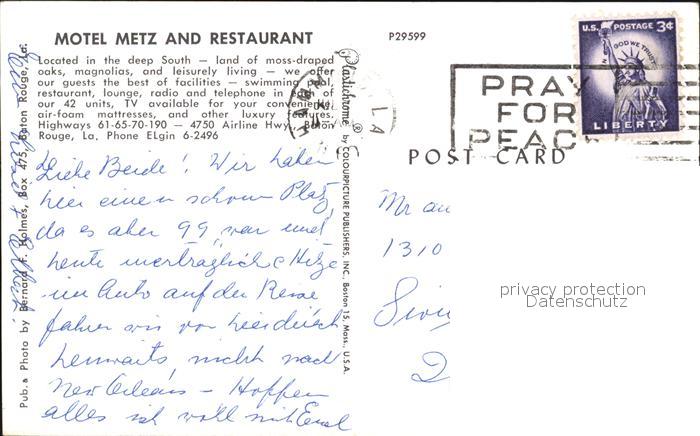 MOTEL METZ AND RESTAURANT
P29599
Located in the deep South — land of moss-draped
oaks, magnolias, and leisurely living — we offer
our guests the best of facilities — swimming pool,
restaurant, lounge, radio and telephone in each of
our 42 units, TV available for your convenience,
air-foam mattresses, and other luxury features.
Highways 61-65-70-190 — 4750 Airline Hwy., Baton
Rouge, La. Phone ELgin 6-2496
Pub. & Photo by Bernard F. Holmes, Box 475, Baton Rouge, La.
Plastichrome ® by COLOURPICTURE PUBLISHERS, INC., Boston 15, Mass., U.S.A.
U.S. POSTAGE 3¢
IN GOD WE TRUST
LIBERTY
PRAY
FOR
PEAC
LA
POST CARD
Liebe Beide! Wir haben
hier einen schonen Platz,
da es aber 99 war und
heute unerträgliche Hitze
im Auto auf der Reise
fahren wir von hier direch
heimwarts, nicht nach
New Orleans — Hoffen
alles ist woll mit Euch
Mr an
1310
2
privacy protection
Datenschutz